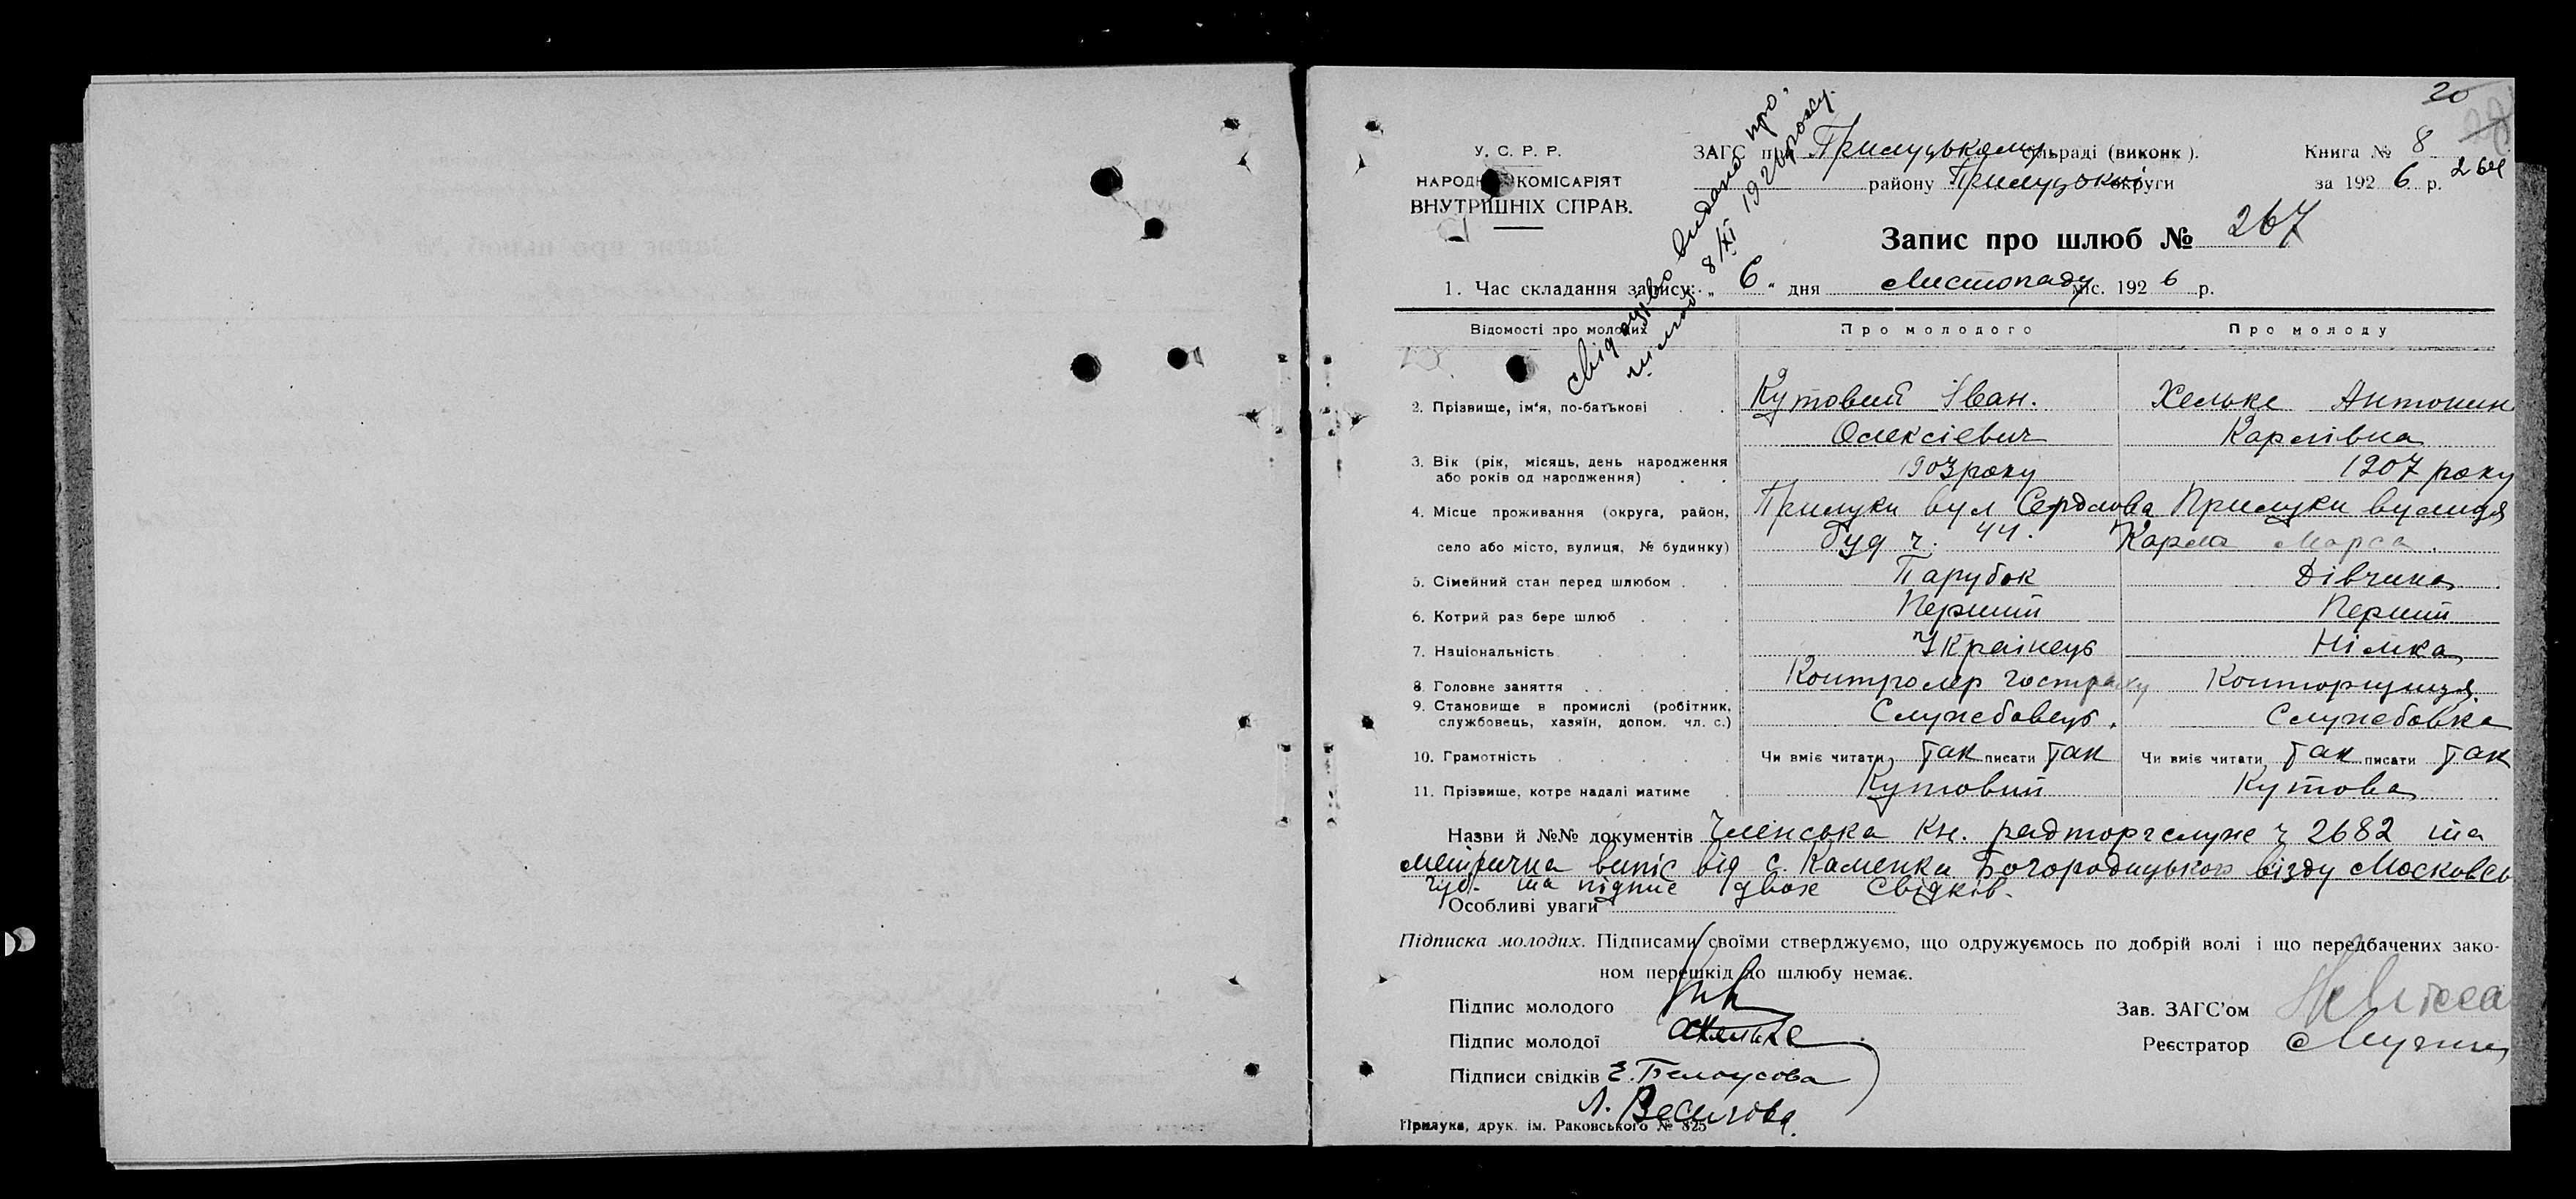 20
У. С. Р. Р.
НАРОДН КОМІСАРІЯТ
ВНУТРІШНІХ СПРАВ.
ЗАГС при Прилуцькому сільраді (виконк).
району Прилуцької округи
Книга № 8
за 1926 р.
264
Запис про шлюб № 267
свідоцтво видано про
шлюб 8/XI 1926 року.
1. Час складання запису: „6“ дня Листопаду міс. 1926 р.
Відомості про молодих Про молодого Про молоду
2. Прізвище, ім'я, по-батькові Кутовий Іван. Хельке Антонин
Олексієвич Карлівна
3. Вік (рік, місяць, день народження 1903 року 1907 року
або років од народження)
4. Місце проживання (округа, район, Прилуки вул Сердлова Прилуки вулиця
село або місто, вулиця, № будинку) буд ч. 44. Карла Марса.
5. Сімейний стан перед шлюбом Парубок Дівчина
6. Котрий раз бере шлюб Перший Перший
7. Національність Українець Німка
8. Головне заняття Контролер Госстраху Конторщиця.
9. Становище в промислі (робітник, Служебовець. Служебовка
службовець, хазяїн, допом. чл. с.)
10. Грамотність Чи вміє читати так писати так Чи вміє читати так писати так
11. Прізвище, котре надалі матиме Кутовий Кутова
Назви й №№ документів Членська Кн. радторгслуж ч 2682 та
метрична випіс від с. Каменки Богородицького візду Московсь
губ. та підпис двох свідків.
Особливі уваги
Підписка молодих. Підписами своїми стверджуємо, що одружуємось по добрій волі і що передбачених зако-
ном перешкід до шлюбу немає.
Підпис молодого
Підпис молодої АХельке
Підписи свідків Е. Белоусова
Л.
Зав. ЗАГС'ом
Реєстратор
Прилука, друк. ім. Раковського № 825